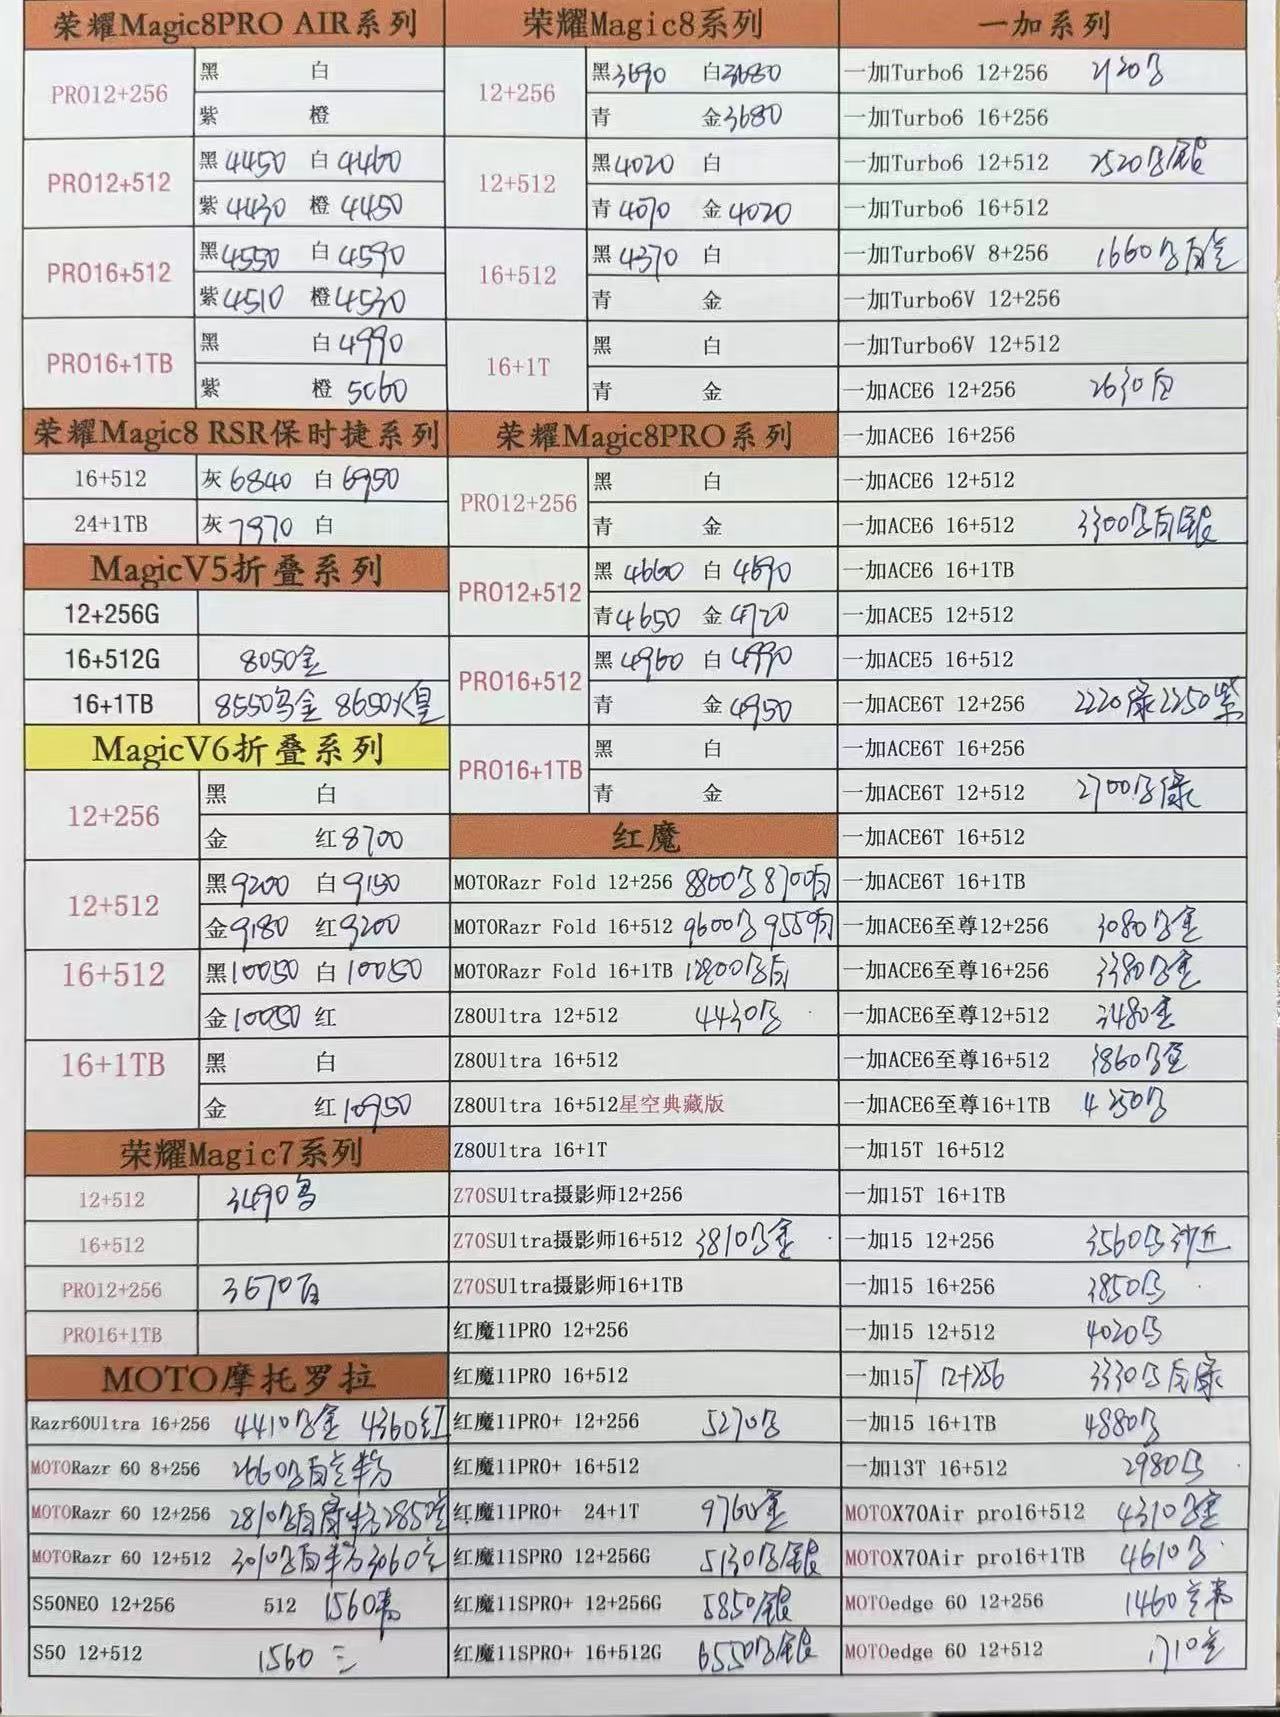 荣耀Magic8PRO AIR系列
PRO12+256
黑 白
紫 橙
PRO12+512
黑4450 白4460
紫4430 橙4450
PRO16+512
黑4550 白4590
紫4510 橙4530
PRO16+1TB
黑 白4990
紫 橙5060
荣耀Magic8 RSR保时捷系列
16+512 灰6840 白6950
24+1TB 灰7970 白
MagicV5折叠系列
12+256G
16+512G 8050金
16+1TB 8550乌金 8650火皇
MagicV6折叠系列
12+256
黑 白
金 红8700
12+512
黑9200 白9150
金9180 红9200
16+512
黑10050 白10050
金10050 红
16+1TB
黑 白
金 红10950
荣耀Magic7系列
12+512 3490
16+512
PRO12+256 3670白
PRO16+1TB
MOTO摩托罗拉
Razr60Ultra 16+256 4410 金 4360红
MOTORazr 60 8+256 2660 白 粉
MOTORazr 60 12+256 2810 白 粉2850
MOTORazr 60 12+512 3010 白 粉3060
S50NEO 12+256 512 1560
S50 12+512 1560 兰
荣耀Magic8系列
12+256
黑3690 白3680
青 金3680
12+512
黑4020 白
青4070 金4020
16+512
黑4370 白
青 金
16+1T
黑 白
青 金
荣耀Magic8PRO系列
PRO12+256
黑 白
青 金
PRO12+512
黑4660 白4690
青4650 金4720
PRO16+512
黑4960 白4990
青 金4950
PRO16+1TB
黑 白
青 金
红魔
MOTORazr Fold 12+256 8800 8700白
MOTORazr Fold 16+512 9600 9550白
MOTORazr Fold 16+1TB 12800 白
Z80Ultra 12+512 4430
Z80Ultra 16+512
Z80Ultra 16+512星空典藏版
Z80Ultra 16+1T
Z70SUltra摄影师12+256
Z70SUltra摄影师16+512 3810 金
Z70SUltra摄影师16+1TB
红魔11PRO 12+256
红魔11PRO 16+512
红魔11PRO+ 12+256 5270
红魔11PRO+ 16+512
红魔11PRO+ 24+1T 9760金
红魔11SPRO 12+256G 5130 银
红魔11SPRO+ 12+256G 5850银
红魔11SPRO+ 16+512G 6550 银
一加系列
一加Turbo6 12+256 2120
一加Turbo6 16+256
一加Turbo6 12+512 2520 银
一加Turbo6 16+512
一加Turbo6V 8+256 1660 白兰
一加Turbo6V 12+256
一加Turbo6V 12+512
一加ACE6 12+256 2630白
一加ACE6 16+256
一加ACE6 12+512
一加ACE6 16+512 3300 白银
一加ACE6 16+1TB
一加ACE5 12+512
一加ACE5 16+512
一加ACE6T 12+256 2220绿2250紫
一加ACE6T 16+256
一加ACE6T 12+512 2700 绿
一加ACE6T 16+512
一加ACE6T 16+1TB
一加ACE6至尊12+256 3080 金
一加ACE6至尊16+256 3380 金
一加ACE6至尊12+512 3480金
一加ACE6至尊16+512 3860 金
一加ACE6至尊16+1TB 4250
一加15T 16+512
一加15T 16+1TB
一加15 12+256 3560
一加15 16+256 3850
一加15 12+512 4020
一加15T 12+256 3330 白绿
一加15 16+1TB 4880
一加13T 16+512 2980
MOTOX70Air pro16+512 4310 金
MOTOX70Air pro16+1TB 4610
MOTOedge 60 12+256 1460兰
MOTOedge 60 12+512 1710兰